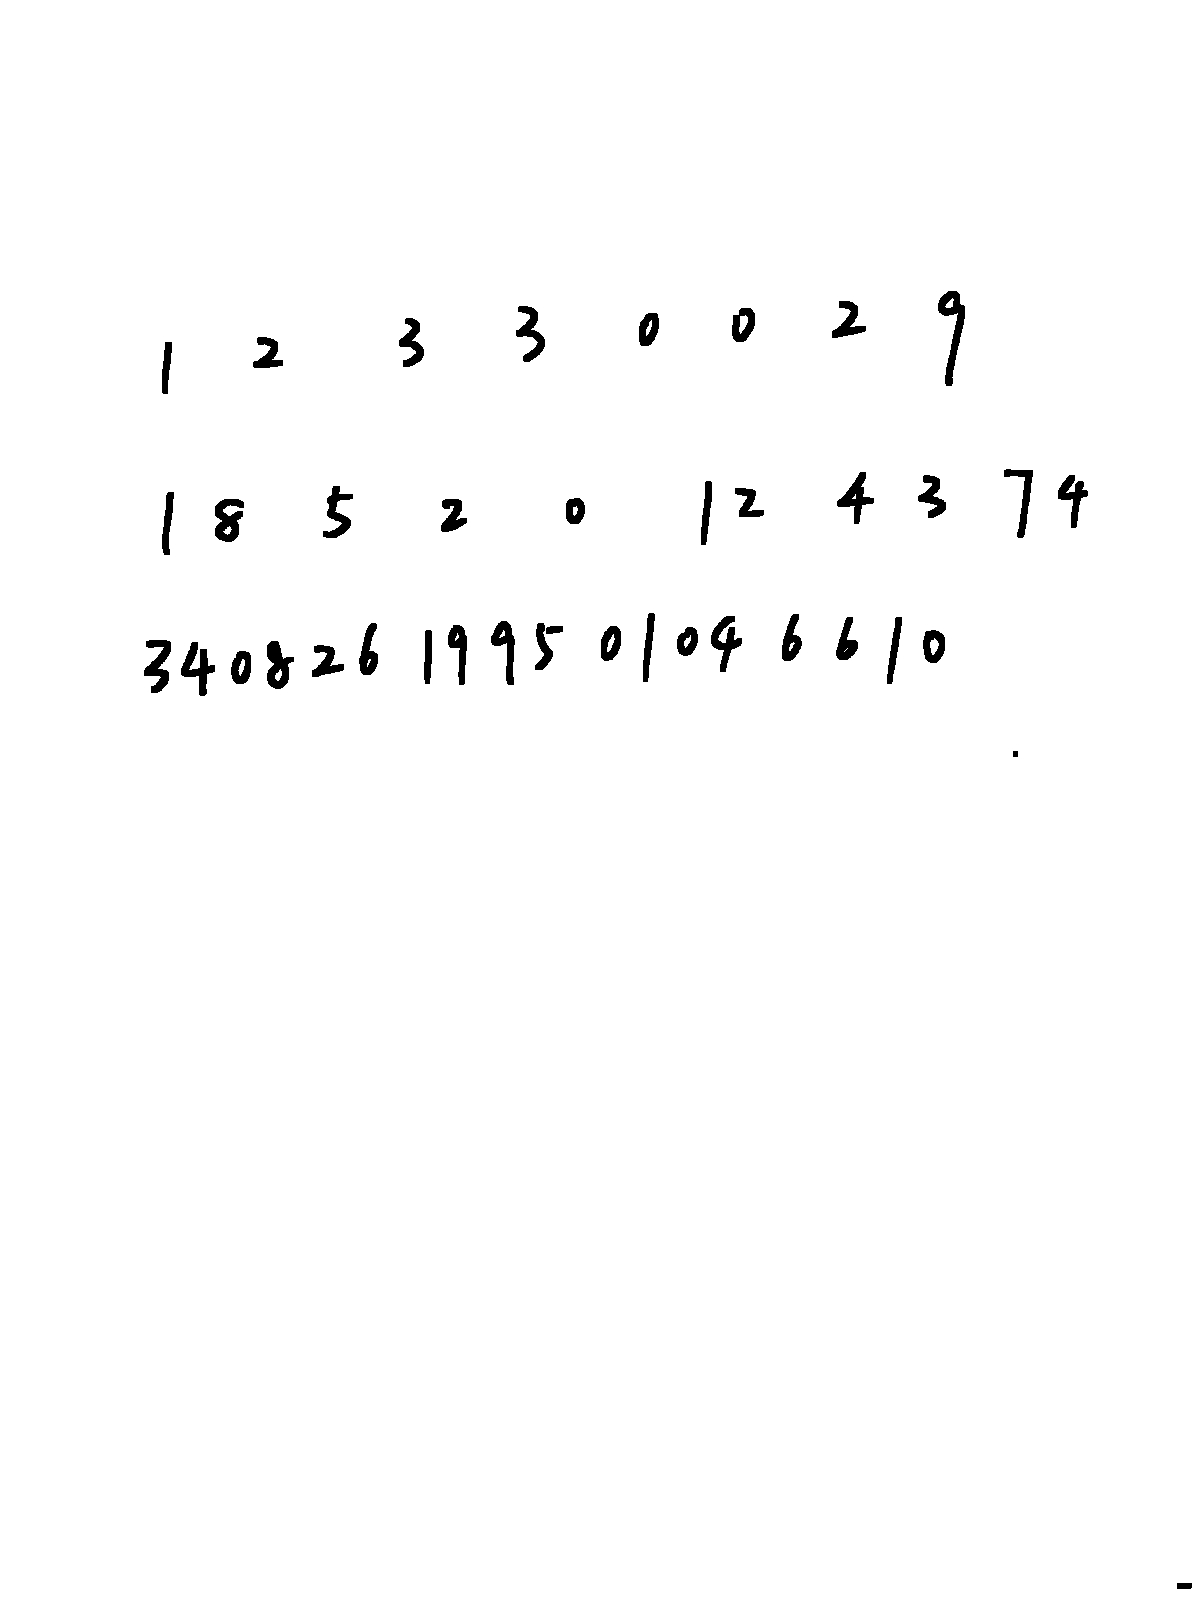 1 2 3 3 0 0 2 9
1 8 5 2 0 1 2 4 3 7 4
340826 1995 0104 6610